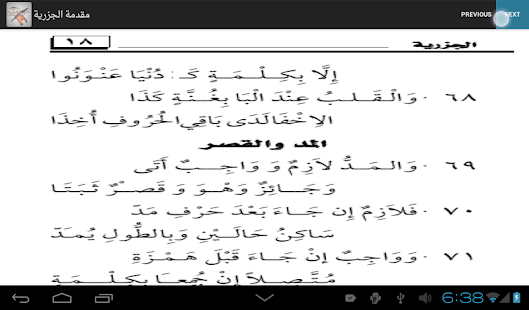 مقدمة الجزرية
PREVIOUS
NEXT
الجزرية ١٨
إِلَّا بِكِلْمَةٍ كَـ: دُنْيَا عَنْوَنُوا
٦٨ ٠ وَالْقَلْبُ عِنْدَ الْبَا بِغُنَّةٍ كَذَا
الِاخْفَا لَدَى بَاقِي الْحُرُوفِ أُخِذَا
المد والقصر
٦٩ ٠ وَالْمَدُّ لَازِمٌ وَ وَاجِبٌ أَتَى
وَجَائِزٌ وَهْوَ وَ قَصْرٌ ثَبَتَا
٧٠ ٠ فَلَازِمٌ إِن جَاءَ بَعْدَ حَرْفِ مَدّ
سَاكِنُ حَالَيْنِ وَبِالطُّولِ يُمَدّ
٧١ ٠ وَوَاجِبٌ إِنْ جَاءَ قَبْلَ هَمْزَةِ
مُتَّصِلاً إِنْ جُمِعَا بِكِلْمَةِ
6:38